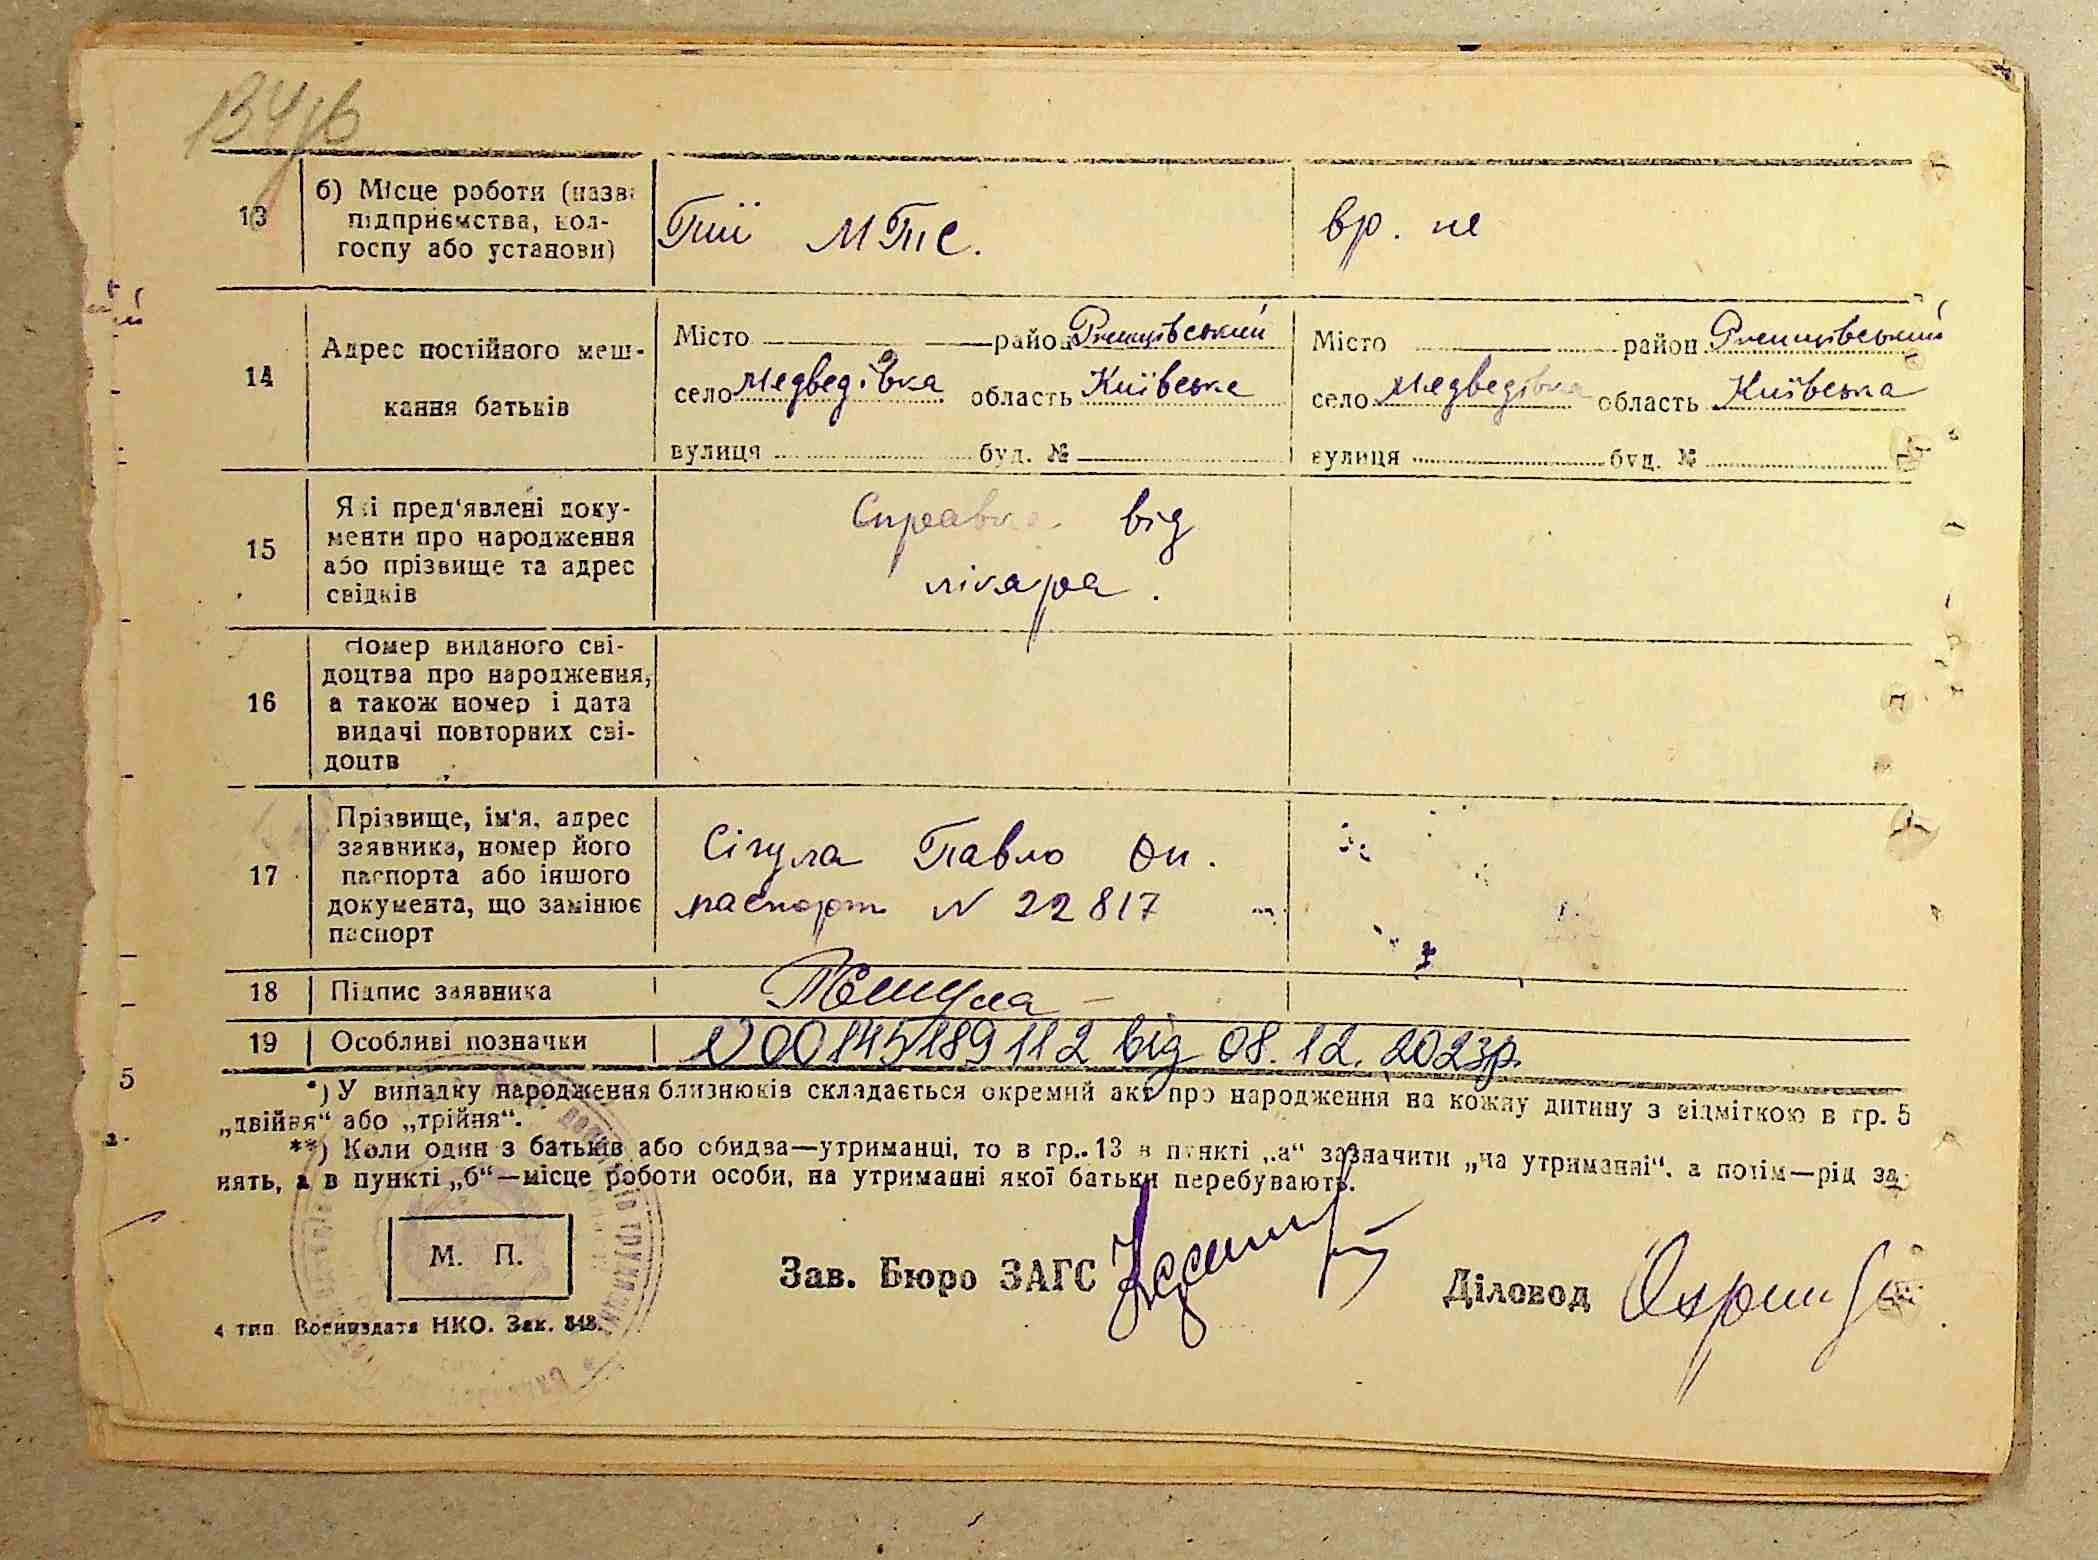 134зв
13
б) Місце роботи (назва
підприємства, кол-
госпу або установи)
Пиї МТС.
вр. не
14
Адрес постійного меш-
кання батьків
Місто район Ржищівський
село Медведівка область Київська
вулиця буд. №
Місто район Ржищівський
село Медведівка область Київська
вулиця буд. №
15
Які пред'явлені доку-
менти про народження
або прізвище та адрес
свідків
Справка від
лікаря.
16
Номер виданого сві-
доцтва про народження,
а також номер і дата
видачі повторних сві-
доцтв
17
Прізвище, ім'я, адрес
заявника, номер його
паспорта або іншого
документа, що замінює
паспорт
Сігула Павло Он.
паспорт N 22817
18
Підпис заявника
19
Особливі позначки
N 00145189112 від 08.12.2023р.
5
*) У випадку народження близнюків складається окремий акт про народження на кожну дитину з відміткою в гр. 5
„двійня“ або „трійня“.
**) Коли один з батьків або обидва—утриманці, то в гр. 13 в пункті „а“ зазначити „на утриманні“, а потім—рід за-
нять, а в пункті „б“—місце роботи особи, на утриманні якої батьки перебувають.
М. П.
Зав. Бюро ЗАГС
Діловод
4 тип Воениздата НКО. Зак. 848.